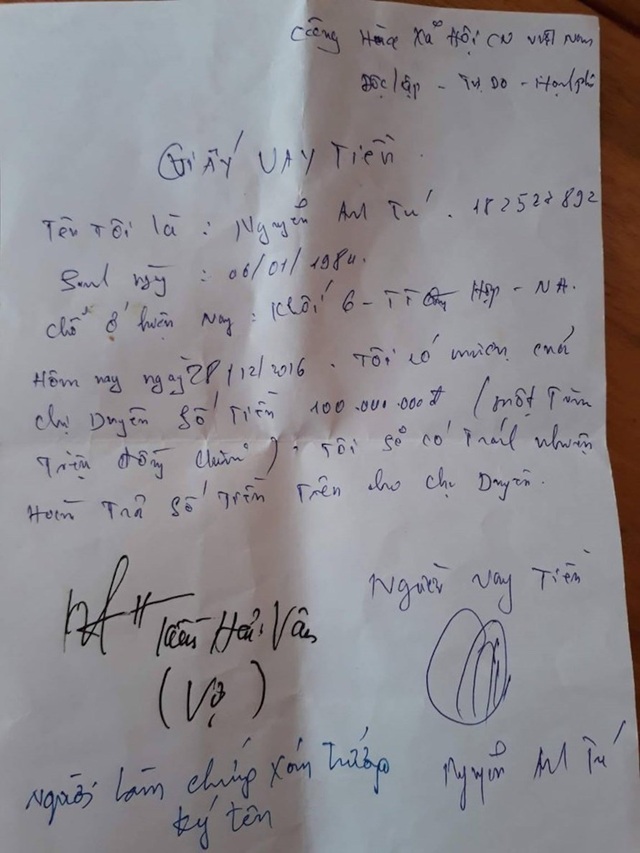 Cộng Hòa Xã Hội CN Việt Nam
Độc lập - Tự Do - Hạnh phú
GIẤY VAY TIỀN.
Tên tôi là : Nguyễn Anh Tú . 182527892
Sinh ngày : 06/01/1984.
Chỗ ở hiện nay : Khối 6 - TT Hợp - NA.
Hôm nay ngày 28/12/2016 . Tôi có mượn của
chị Duyên số tiền 100.000.000đ (một trăm
triệu đồng chẵn) . Tôi sẽ có trách nhiệm
Hoàn trả số tiền trên cho chị Duyên.
Người vay tiền
Trần Hải Vân
(Vợ)
Nguyễn Anh Tú
Người làm chứng
ký tên